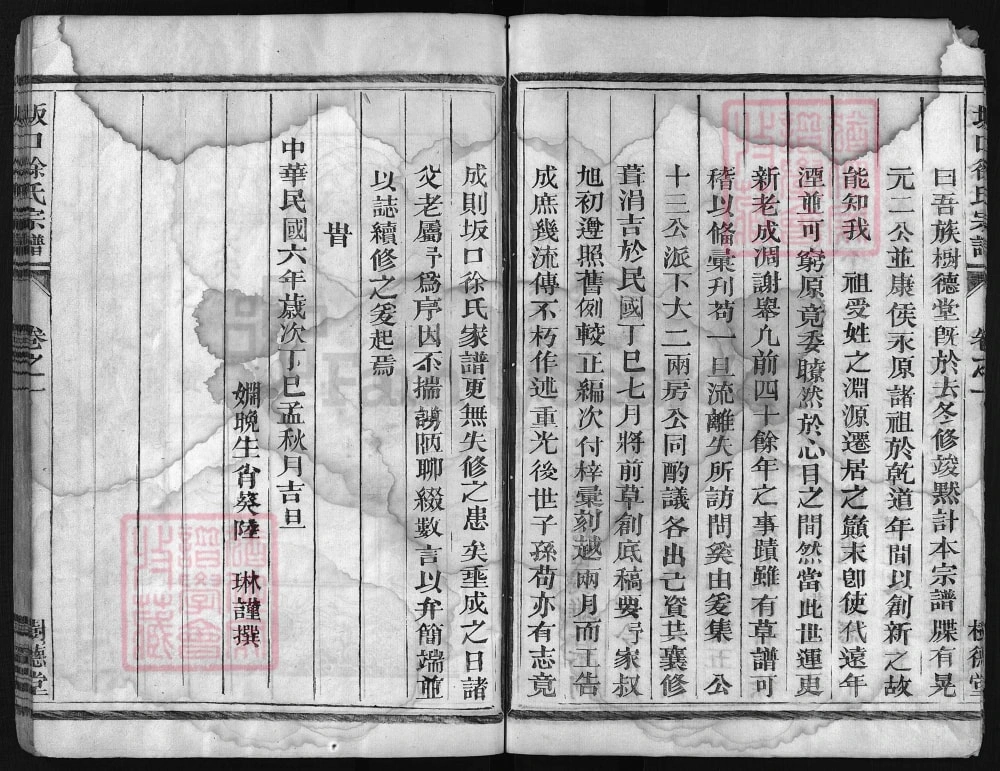 坂口徐氏宗譜 卷之一 樹德堂
曰吾族樹德堂旣於去冬修竣默計本宗譜牒有晃
元二公並康侯永原諸祖於乾道年間以創新之故
能知我 祖受姓之淵源遷居之巔末卽使代遠年
湮並可窮原竟委瞭然於心目之間然當此世運更
新老成凋謝舉凡前四十餘年之事蹟雖有草譜可
稽以備彙刋苟一旦流離失所訪問奚由爰集 公
十三公派下大二兩房公同酌議各出己資共襄修
葺涓吉於民國丁巳七月將前草創底稿要予家叔
旭初遵照舊例較正編次付梓彙刻越兩月而工告
成庶幾流傳不朽作述重光後世子孫苟亦有志竟
成則坂口徐氏家譜更無失修之患矣垂成之日諸
父老屬予爲序因不揣謭陋聊綴數言以弁簡端並
以誌續修之爰起焉
旹
中華民國六年歲次丁巳孟秋月吉旦
姻晚生肖癸陸 琳謹撰
坂口徐氏宗譜 卷之一 樹德堂